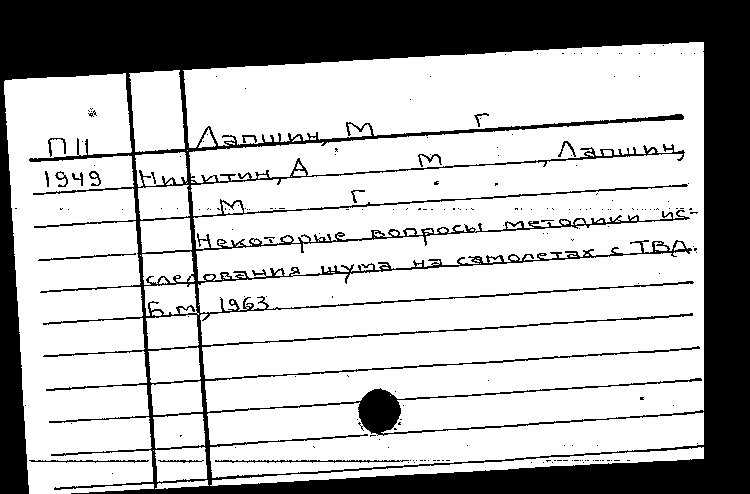 П11 Лапшин, М Г
1949 Никитин, А М , Лапшин,
М Г.
Некоторые вопросы методики ис-
следования шума на самолетах с ТВД.
Б.м., 1963.